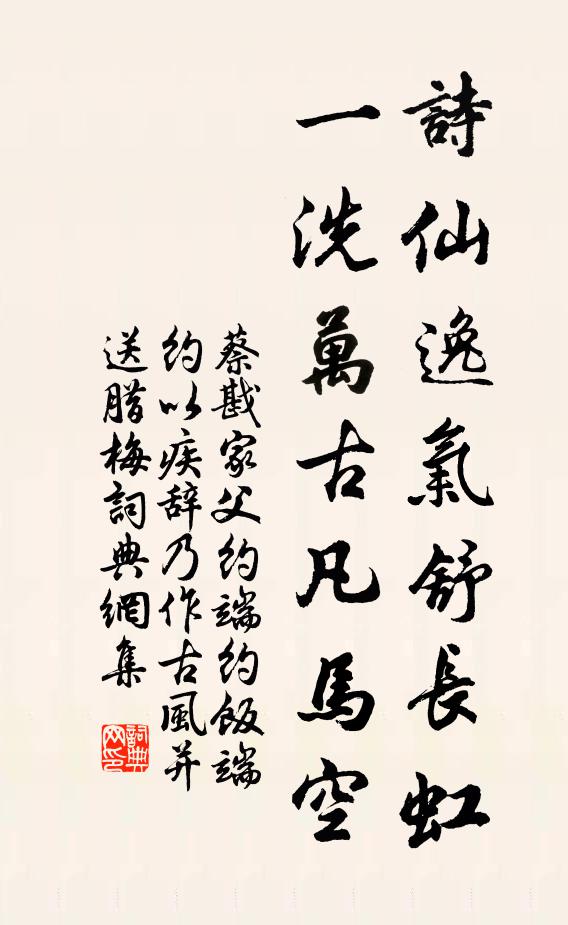 詩仙逸氣舒長虹
一洗萬古凡馬空
蔡戡家父約端約飯端
約以疾辞乃作古風并
送腊梅詞典網集
詞典网印